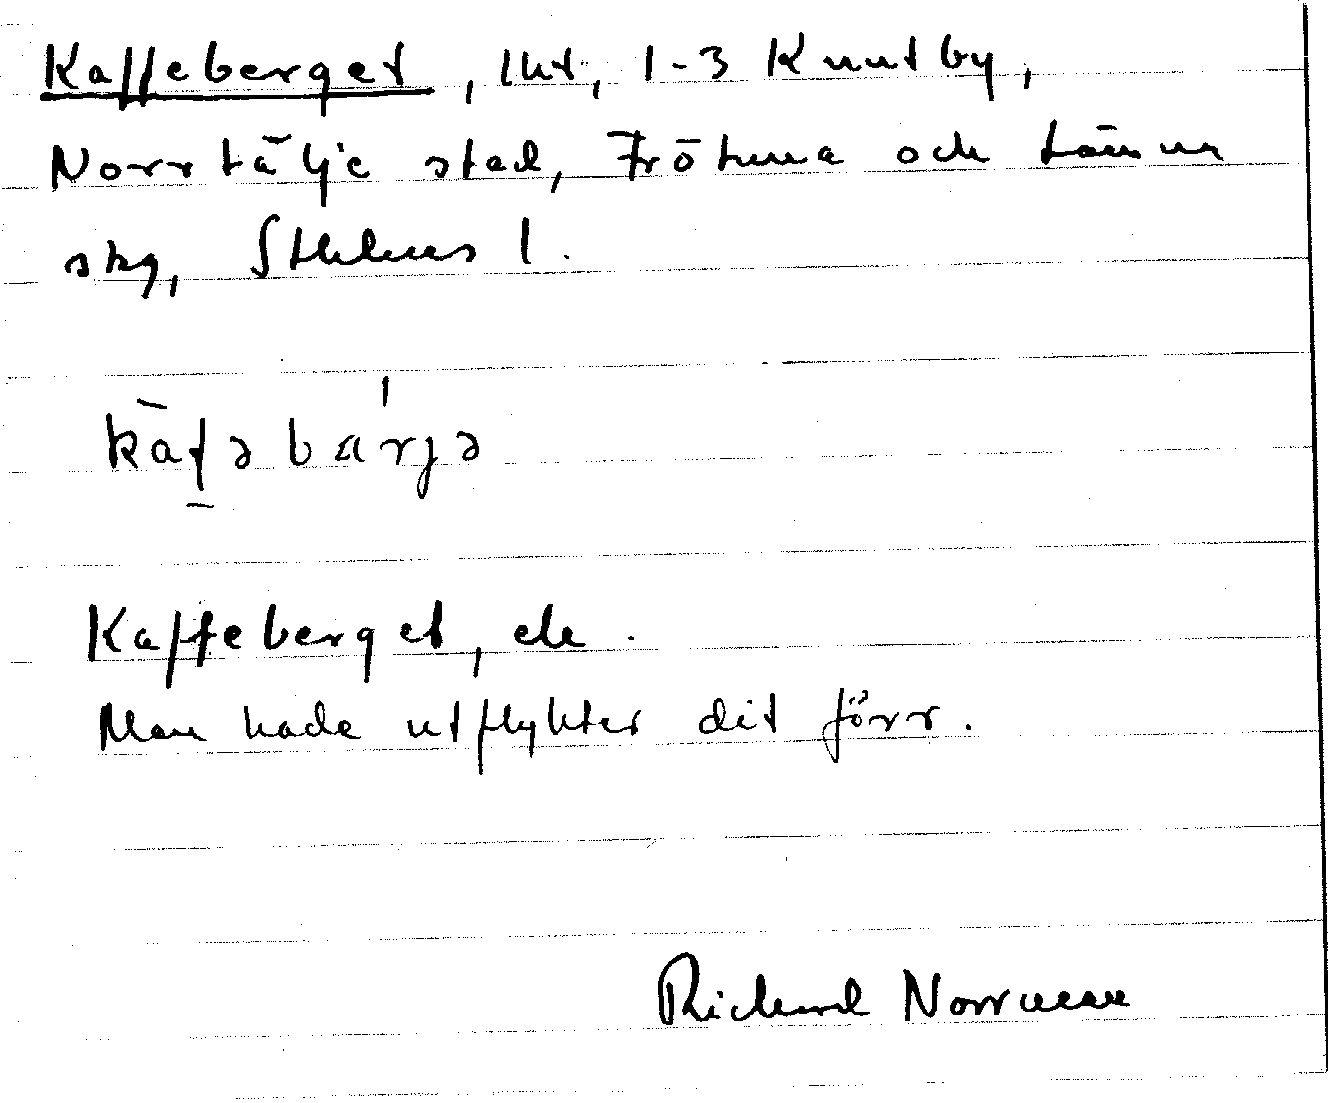 Kaffeberget, lht, 1-3 Knutby,
Norrtälje stad, Frötuna och Länna
skg, Sthlms l.
kàfəbárjə
Kaffeberget, de.
Man hade utflykter dit förr.
Richard Norrman